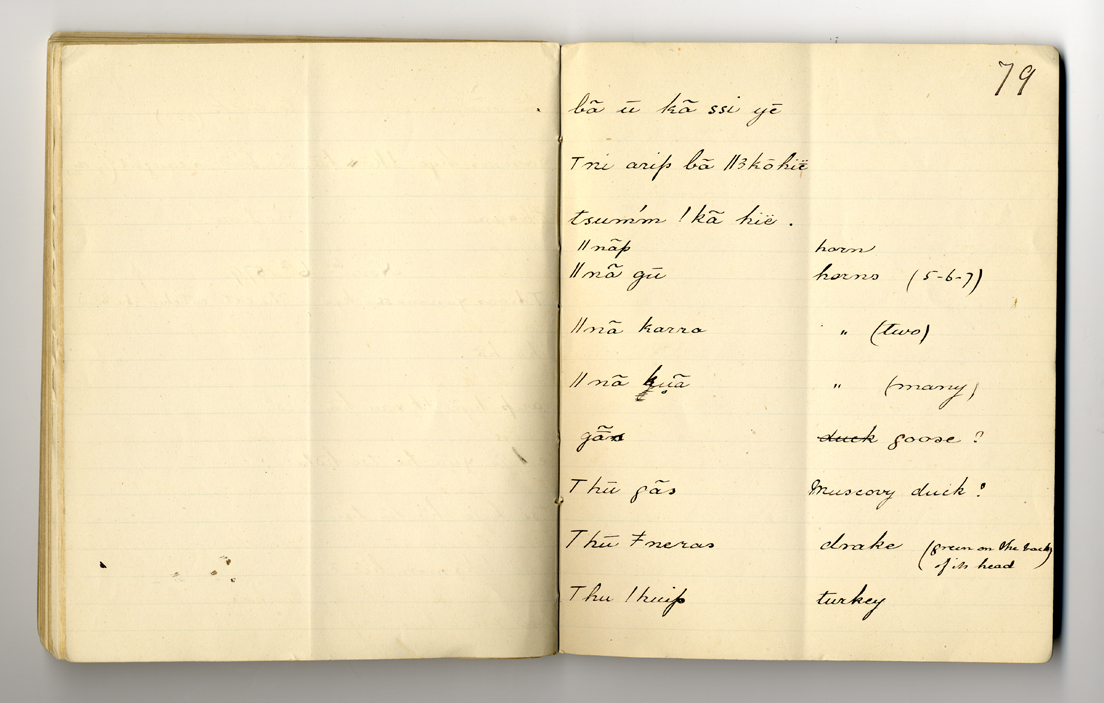 79
bã ū kã ssi yē
Tni arip bã ǁ3kōhïe
tsum'm !kã hïe .
ǁnãp horn
ǁnã gū horns (5-6-7)
ǁnã karra " (two)
ǁnã " (many)
gãs duck goose ?
Thū gãs Muscovy duck ?
Thū ǂneras drake (green on the back
of its head)
Thu !huip turkey